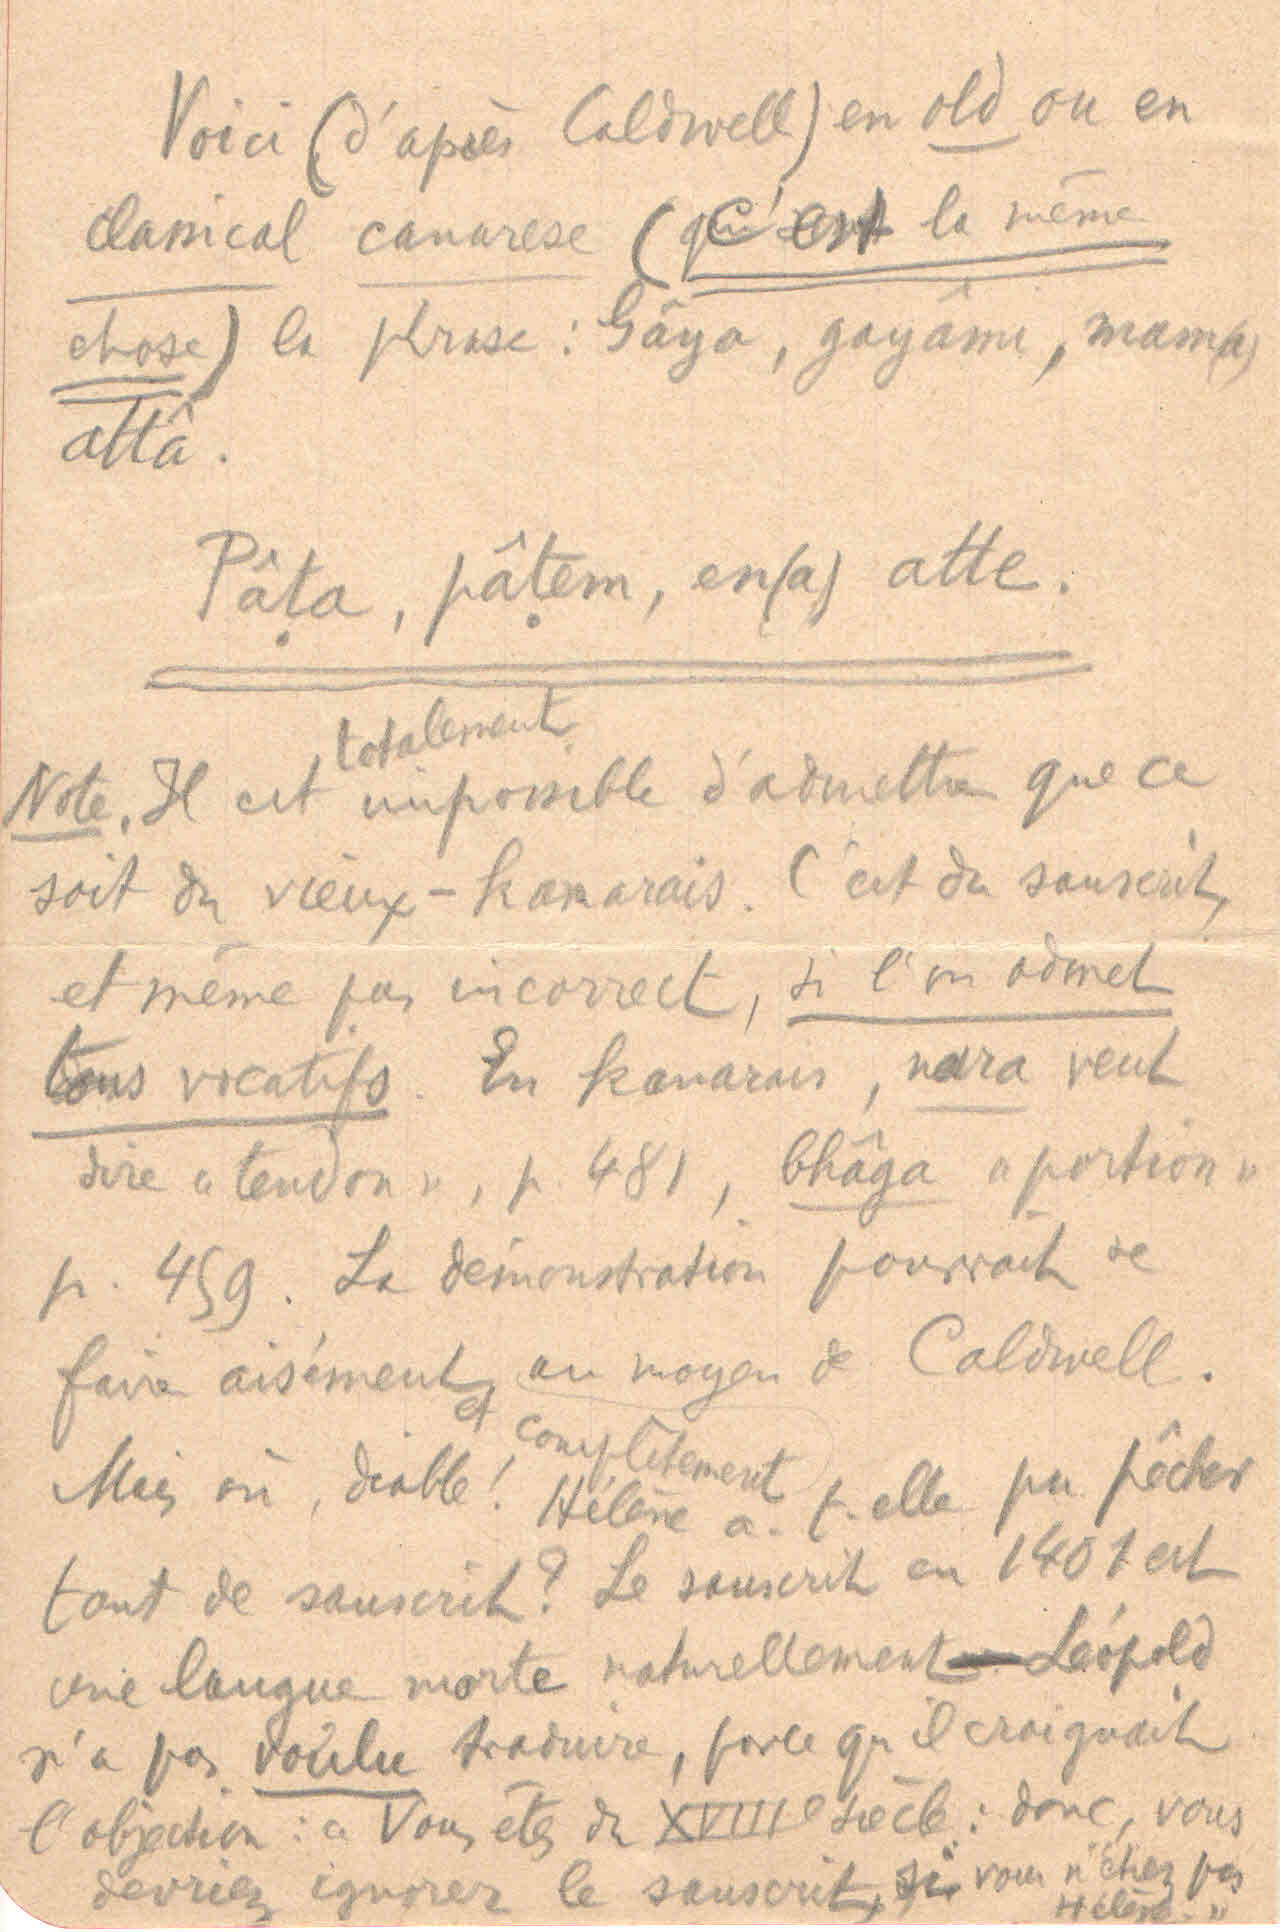 Voici (d'après Caldwell) en old ou en
classical canarese (c'est la même
chose) la phrase : Gâya, gayâmi, mam(a)
attâ.
Pâṭa, pâṭem, en(a) atte.
totalement
Note. Il est impossible d'admettre que ce
soit du vieux-kanarais. C'est du sanscrit,
et même pas incorrect, si l'on admet
tous vocatifs. En kanarais, nara veut
dire « tendon », p. 481, bhâga « portion »
p. 459. La démonstration pourrait se
faire aisément, au moyen de Caldwell.
et complètement
Mais où, diable! Hélène a-t-elle pu pêcher
tant de sanscrit? Le sanscrit en 1401 est
une langue morte naturellement — Léopold
n'a pas voulu traduire, parce qu'il craignait
l'objection : « Vous êtes du XVIIIe siècle : donc, vous
devriez ignorer le sanscrit, si vous n'étiez pas
Hélène. »